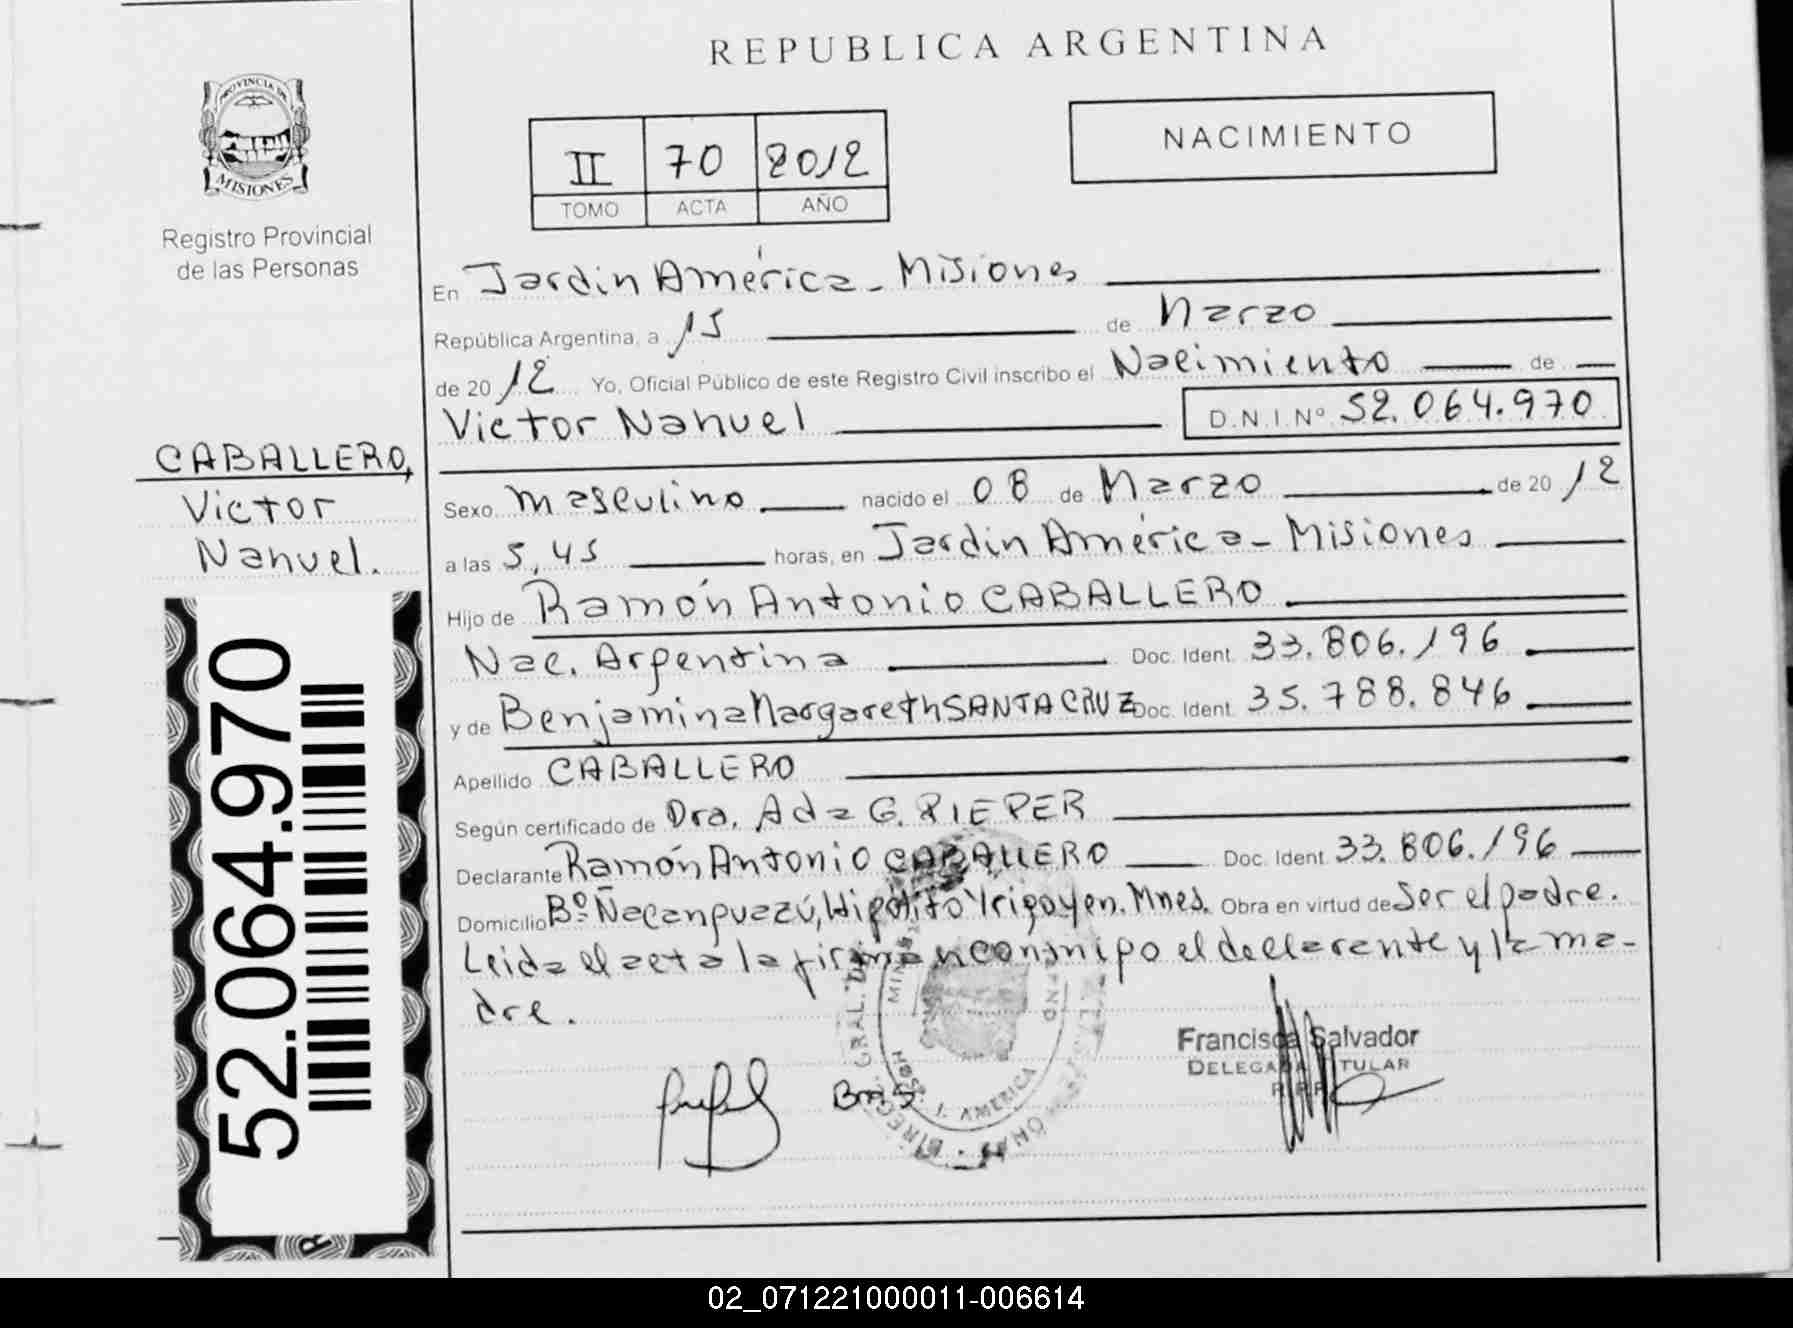 REPUBLICA ARGENTINA
PROVINCIA DE
MISIONES
Registro Provincial
de las Personas
II 70 2012
TOMO ACTA AÑO
NACIMIENTO
En Jardín América - Misiones
República Argentina, a 15 de Marzo
de 2012 Yo, Oficial Público de este Registro Civil inscribo el Nacimiento de
Victor Nahuel D.N.I. Nº 52.064.970
CABALLERO,
Victor
Nahuel.
Sexo Masculino nacido el 08 de Marzo de 2012
a las 5,45 horas, en Jardín América - Misiones
Hijo de Ramón Antonio CABALLERO
Nac. Argentina Doc. Ident. 33.806.196
y de Benjamina Margareth SANTA CRUZ Doc. Ident. 35.788.846
Apellido CABALLERO
Según certificado de Dra. Ada G. PIEPER
Declarante Ramón Antonio CABALLERO Doc. Ident. 33.806.196
Domicilio Bº Ñacanguazú, Hipólito Yrigoyen. Mnes. Obra en virtud de Ser el padre.
Leida el acta la firman conmigo el declarante y la ma-
dre.
Francisca Salvador
DELEGADA TITULAR
I. AMERICA
52.064.970
02_071221000011-006614